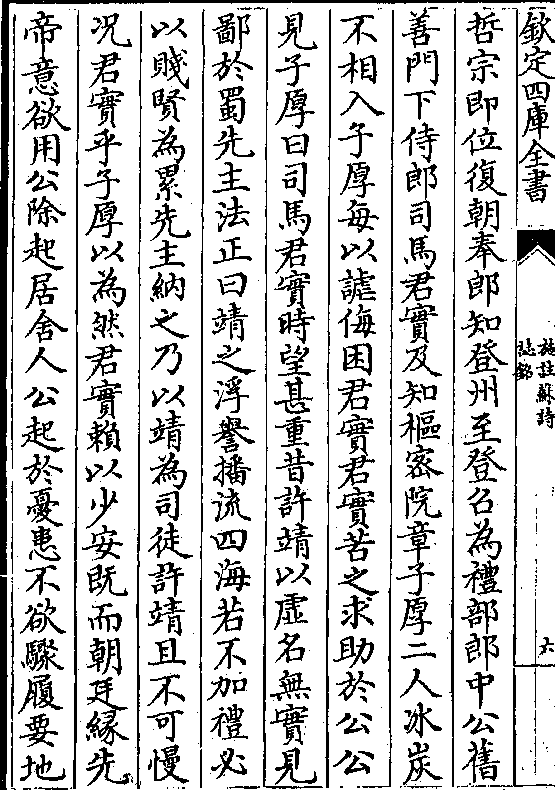 欽定四庫全書
施註蘇詩
誌銘
六
哲宗即位復朝奉郎知登州至登召為禮部郎中公舊
善門下侍郎司馬君實及知樞密院章子厚二人冰炭
不相入子厚每以謔侮困君實君實苦之求助於公公
見子厚曰司馬君實時望甚重昔許靖以虛名無實見
鄙於蜀先主法正曰靖之浮譽播流四海若不加禮必
以賤賢為累先主納之乃以靖為司徒許靖且不可慢
况君實乎子厚以為然君實賴以少安既而朝廷緣先
帝意欲用公除起居舍人公起於憂患不欲驟履要地